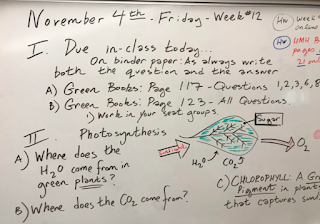 November 4th - Friday - Week #12
Hw Week
online
HMH B
pages
21 onl
I. Due in-class today...
On binder paper: As always write
both the question and the answer
A) Green Books: Page 117 - Questions 1,2,3,6,8
B) Green Books: Page 123 - All Questions
i) Work in your seat groups
II. Photosynthesis
Sugar
A) Where does the
H2O come from in
green plants?
Sunlight
H2O
CO2
O2
B) Where does the CO2 come from?
C) CHLOROPHYLL: A Gr
Pigment in plants
that captures sunl